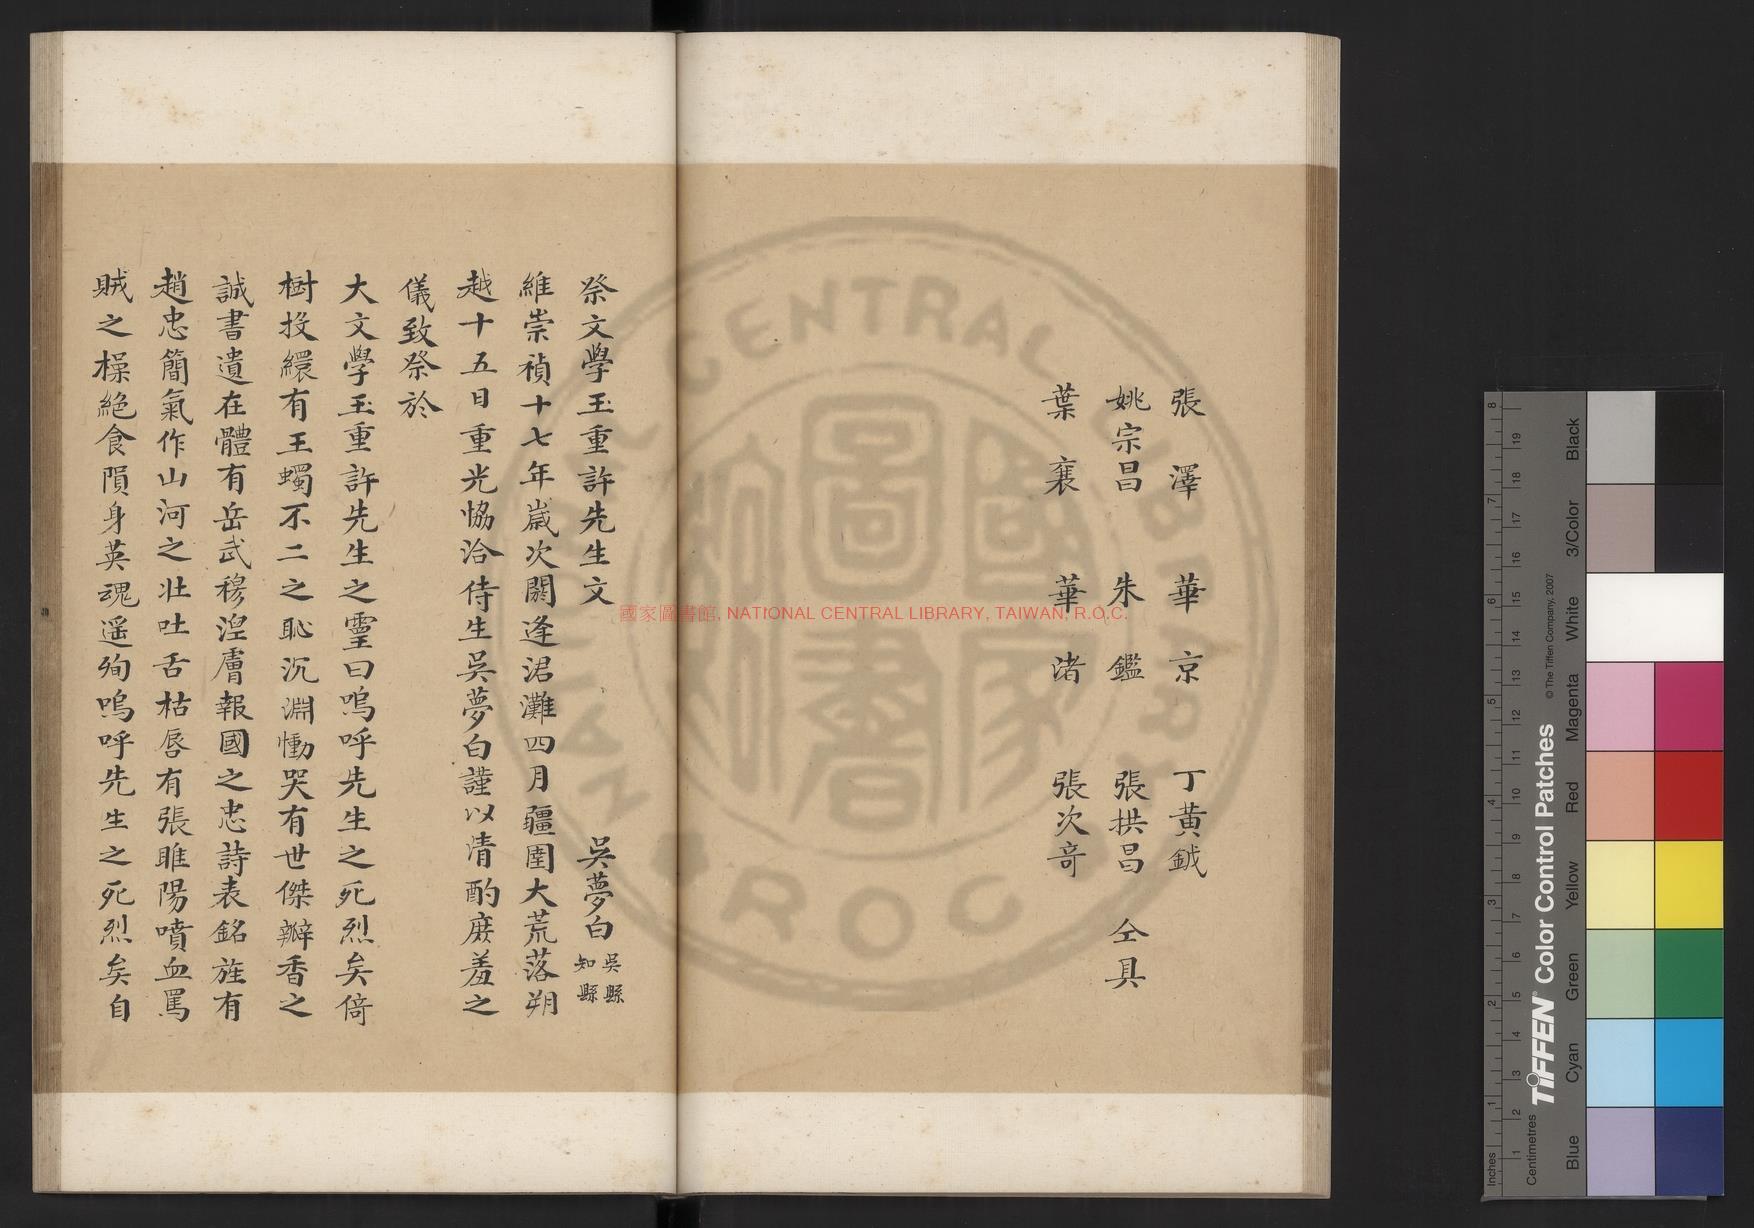 張澤 華京 丁黄鉞
姚宗昌 朱鑑 張拱昌 仝具
葉襄 華渚 張次竒
祭文學玉重許先生文 吳夢白 吳縣知縣
維崇禎十七年嵗次閼逢涒灘四月疆圉大荒落朔
越十五日重光恊洽侍生吳夢白謹以清酌庶羞之
儀致祭於
大文學玉重許先生之靈曰嗚呼先生之死烈矣倚
樹投繯有王蠋不二之恥沉淵慟哭有世傑瓣香之
誠書遺在體有岳武穆湼膚報國之忠詩表銘旌有
趙忠簡氣作山河之壯吐舌枯唇有張睢陽噴血罵
賊之操絶食隕身英魂遥殉嗚呼先生之死烈矣自
國家圖書館, NATIONAL CENTRAL LIBRARY, TAIWAN, R.O.C.
NATIONAL CENTRAL LIBRARY
TAIWAN R.O.C.
國家圖書
TIFFEN® Color Control Patches
© The Tiffen Company, 2007
Inches
Centimetres
Blue Cyan Green Yellow Red Magenta White 3/Color Black
1 2 3 4 5 6 7 8
1 2 3 4 5 6 7 8 9 10 11 12 13 14 15 16 17 18 19